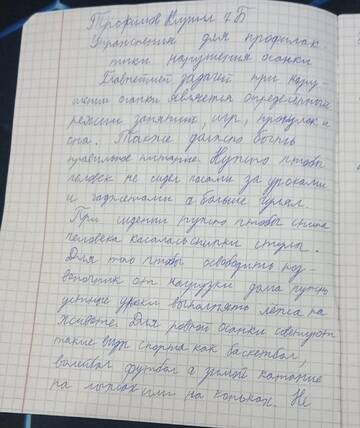 Трофимов Кирилл 7 Б
Упражнения для профилак
тики нарушения осанки
Главнейшей задачей при нару-
шении осанки является определённый
режим занятий, игр, прогулок и
сна. Также должно быть
правильное питание. Нужно чтобы
человек не сидел часами за уроками
и гаджетами а больше гулял.
При сидении нужно чтобы спина
человека касалась спинки стула.
Для того чтобы освободить поз
воночник от нагрузки дома нужно
устные уроки выполнять лёжа на
животе. Для ровной осанки советуют
такие виды спорта как баскетбол,
волейбол футбол а зимой катание
на лыжах или на коньках. Не